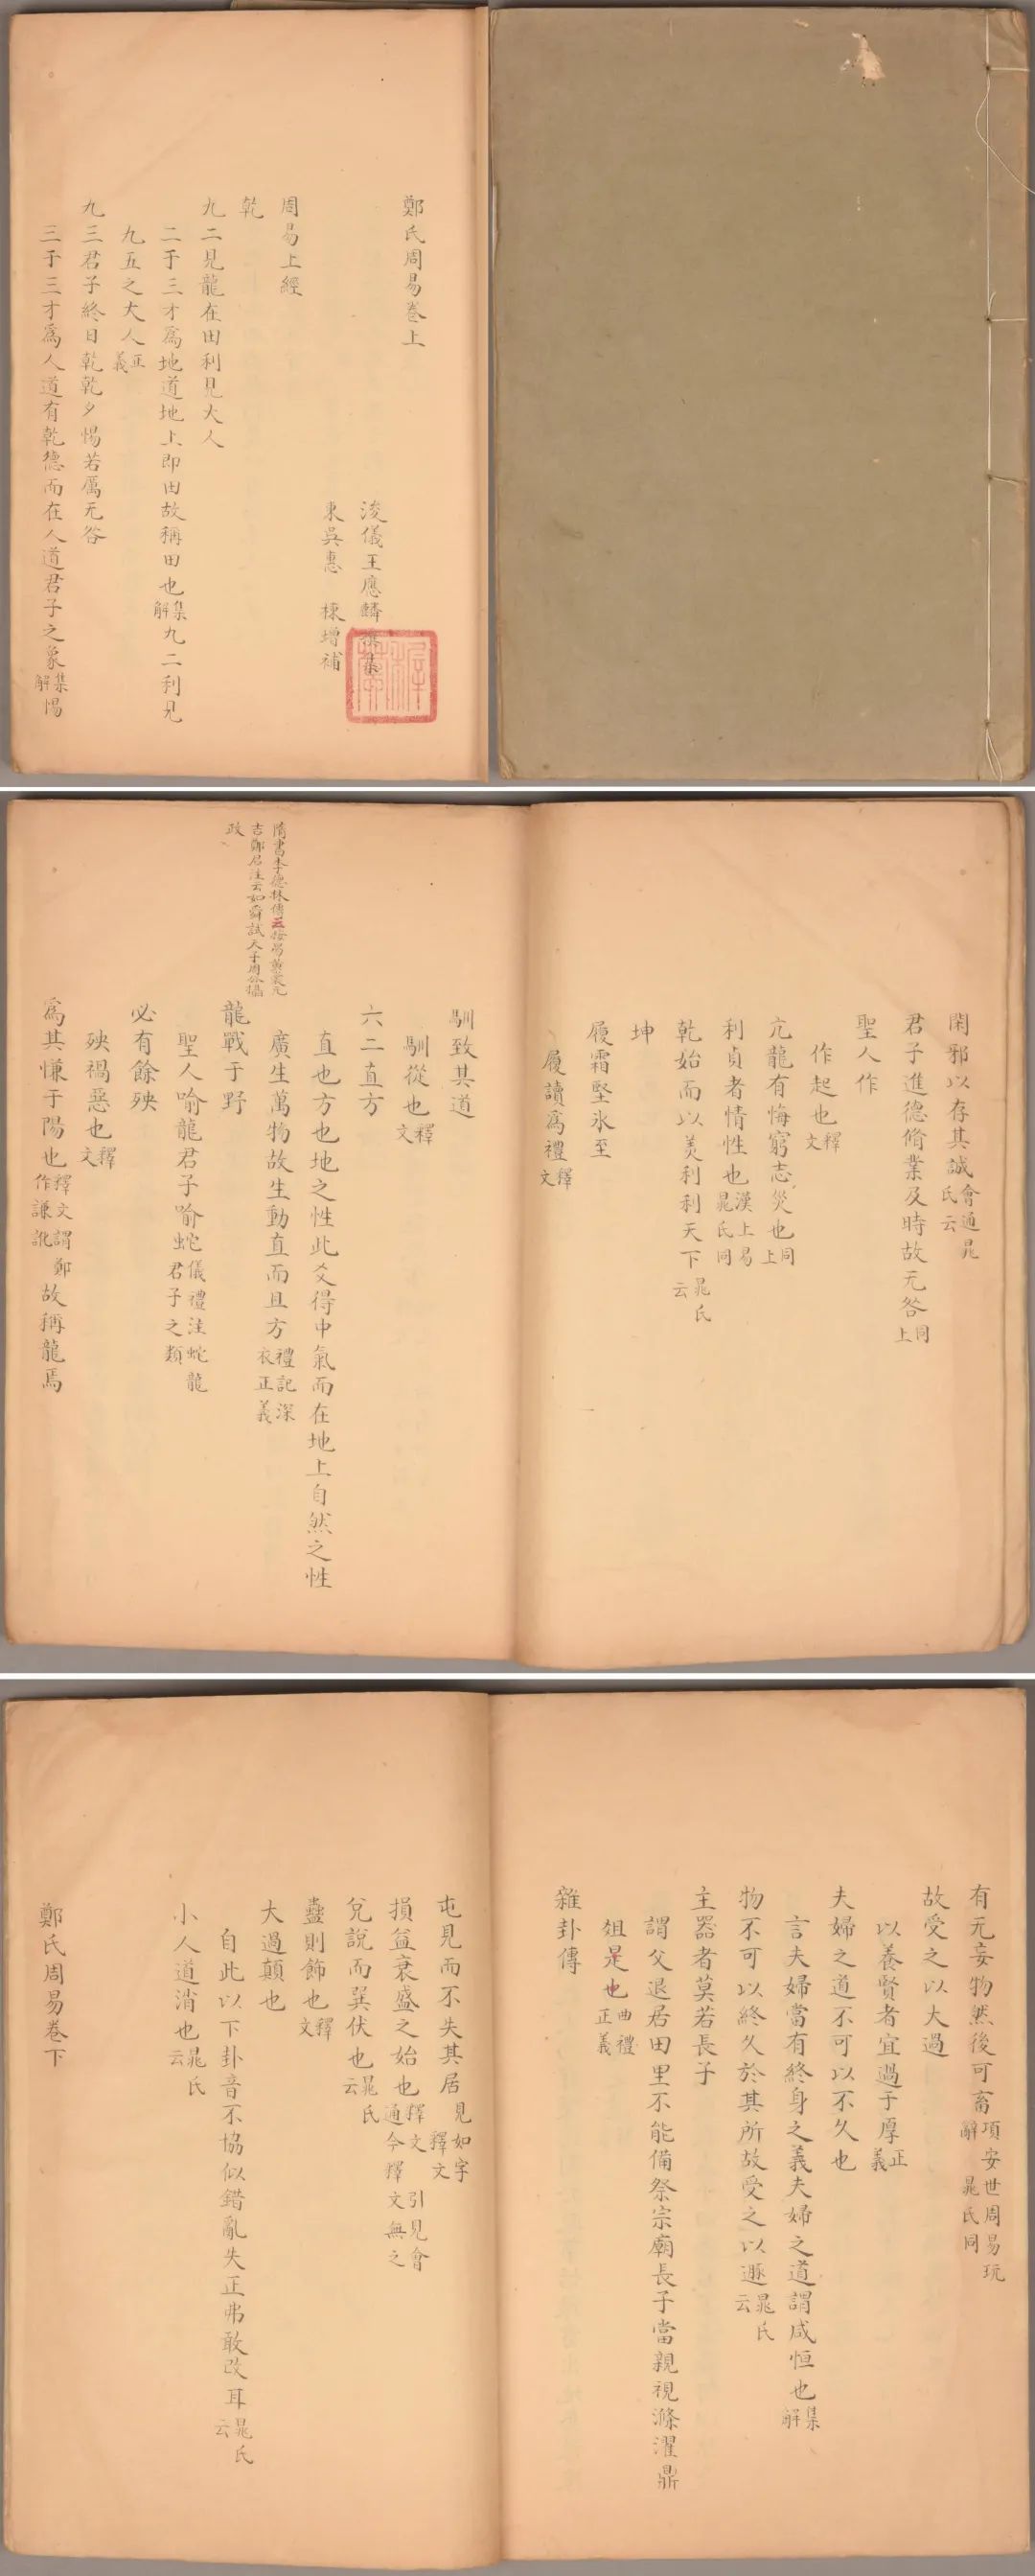 鄭氏周易卷上
浚儀王應麟撰集
東吳惠 棟增補
周易上經
乾
九二見龍在田利見大人
二于三才爲地道地上即田故稱田也集解九二利見
九五之大人正義
九三君子終日乾乾夕惕若厲无咎
三于三才爲人道有乾德而在人道君子之象集解惕
閑邪以存其誠會通晁氏云
君子進德脩業及時故无咎同上
聖人作
作起也釋文
亢龍有悔窮志災也同上
利貞者情性也漢上易晁氏同
乾始而以美利利天下晁氏云
坤
履霜堅氷至
履讀爲禮釋文
馴致其道
馴從也釋文
六二直方
直也方也地之性此爻得中氣而在地上自然之性
廣生萬物故生動直而且方禮記深衣正義
隋書李德林傳
吉鄭君注云如舜試天子周公攝
政
龍戰于野
聖人喻龍君子喻蛇儀禮注蛇龍君子之類
必有餘殃
殃禍惡也釋文
爲其慊于陽也釋文謂鄭作謙訛故稱龍焉
有无妄物然後可畜項安世周易玩辭晁氏同
故受之以大過
以養賢者宜過于厚正義
夫婦之道不可以不久也
言夫婦當有終身之義夫婦之道謂咸恒也集解
物不可以終久於其所故受之以遯晁氏云
主器者莫若長子
謂父退居田里不能備祭宗廟長子當親視滌濯鼎
俎是也曲禮正義
雜卦傳
屯見而不失其居見如字釋文
損益衰盛之始也釋文引見會通今釋文無之
兌說而巽伏也晁氏云
蠱則飾也釋文
大過顛也
自此以下卦音不協似錯亂失正弗敢改耳晁氏云
小人道消也晁氏云
鄭氏周易卷下